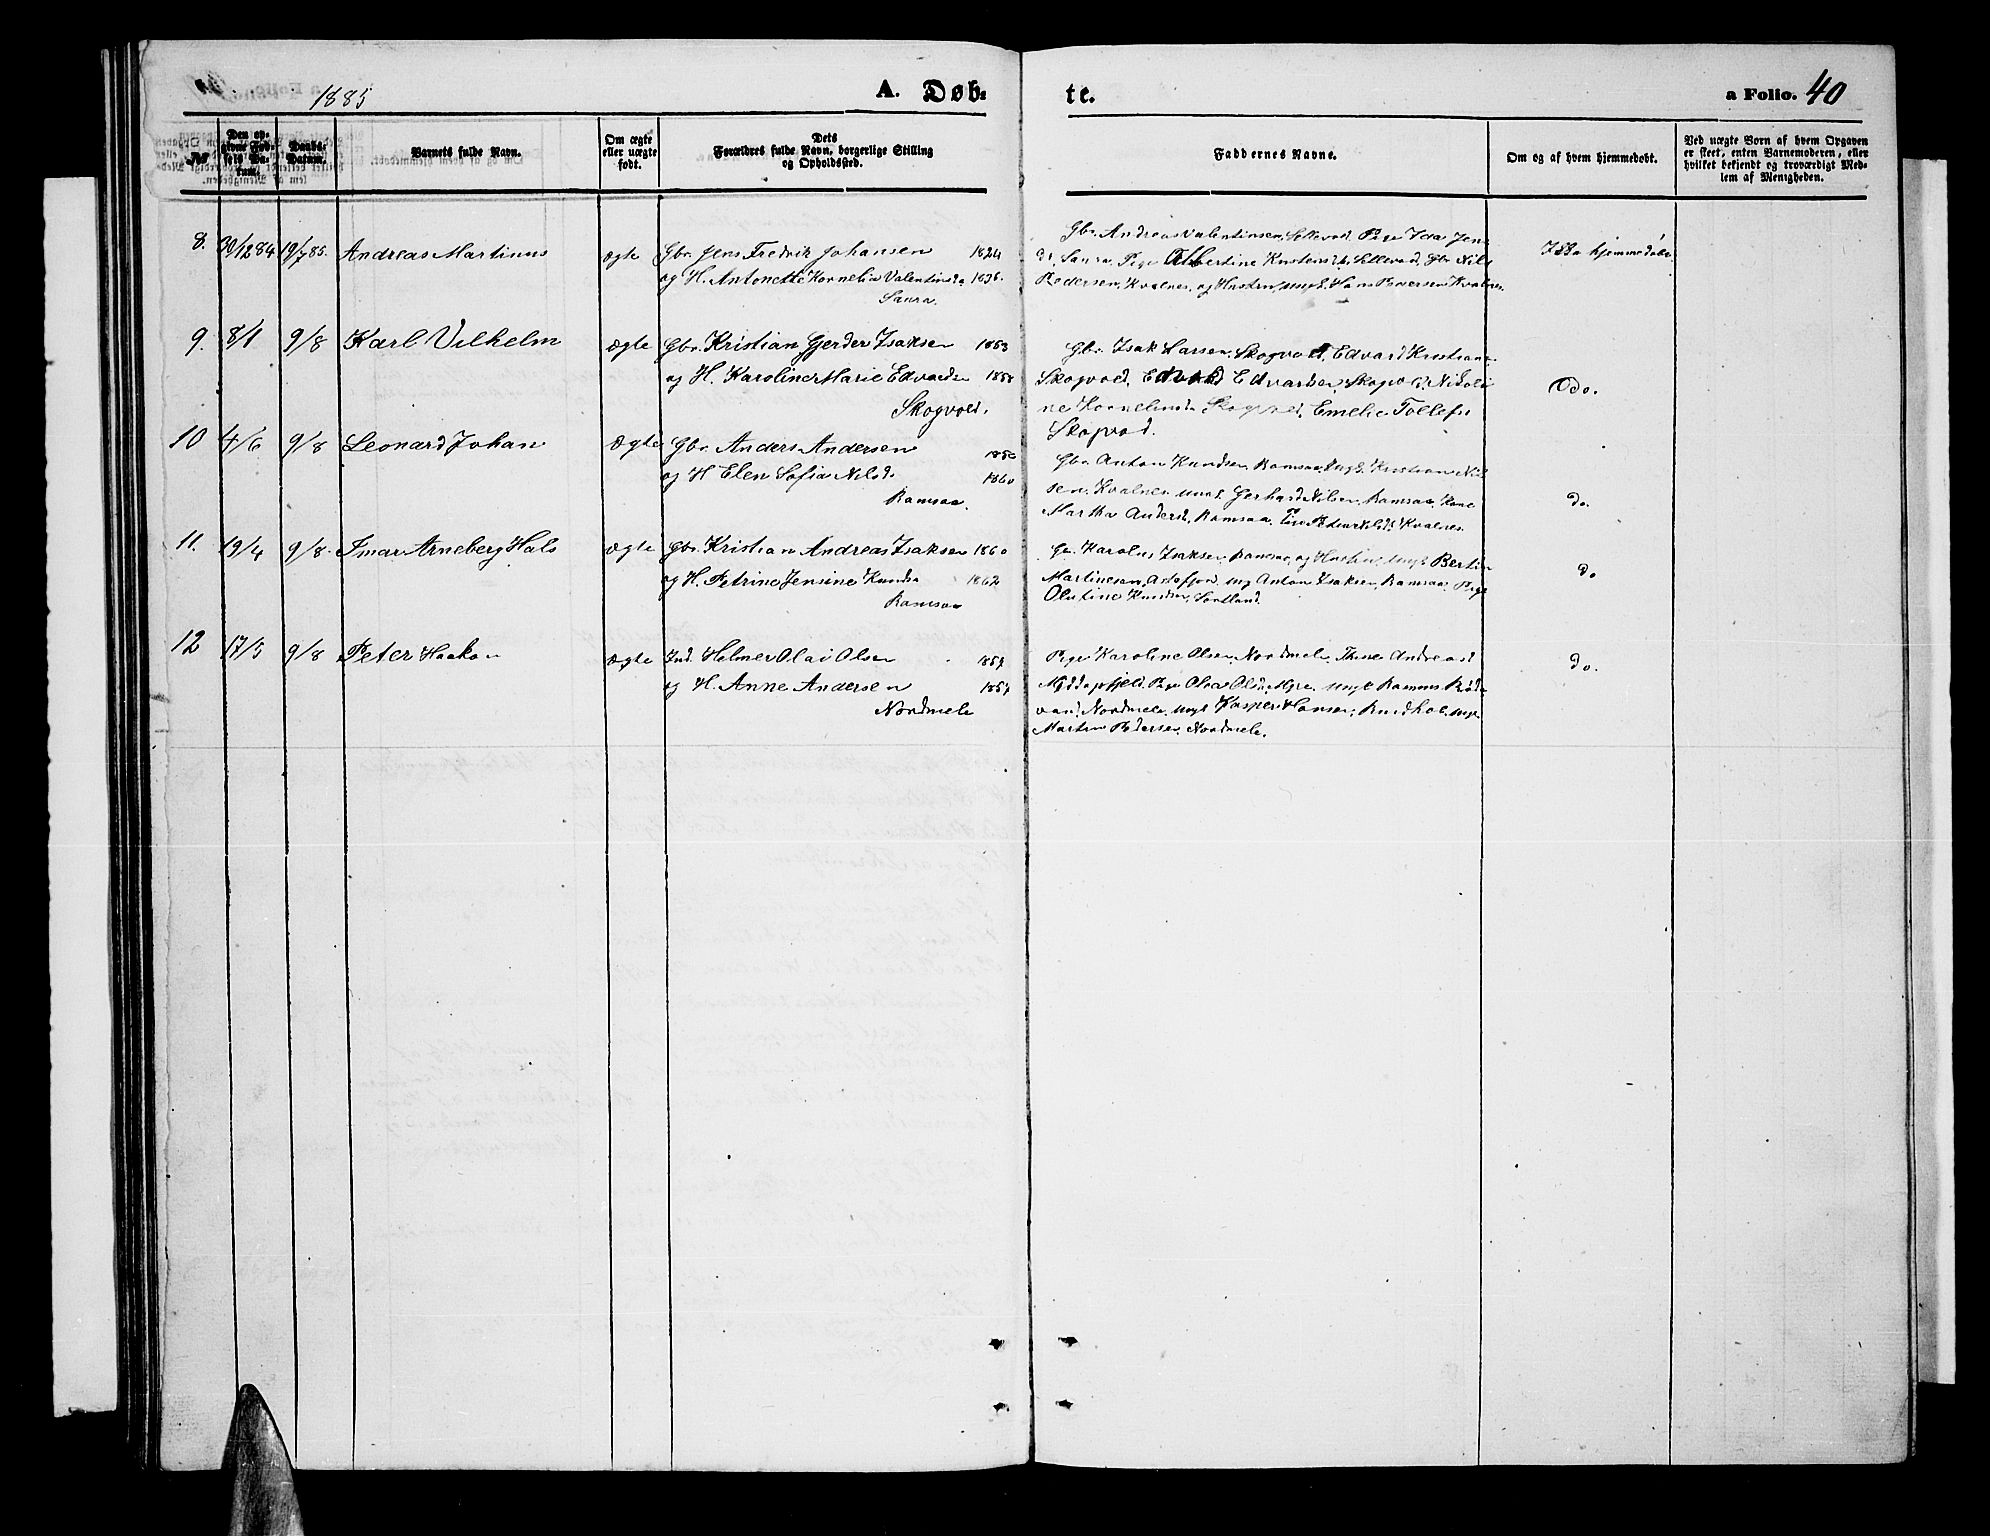 1885 A. Døb- te. a Folio. 40
№ Den opgivne Fødsels Datum. Daabs-Datum. Barnets fulde Navn. Om ægte eller uægte født. Dets Forældres fulde Navn, borgerlige Stilling og Opholdssted. Faddernes Navne. Om og af hvem hjemmedøbt. Ved uægte Børn af hvem Opgaven er skeet, enten Barnemoderen, eller hvilket bekjendt og troværdigt Medlem af Menigheden.
8. 30/12 84 19/7 85. Andreas Martinus ægte Gbr. Jens Fredrik Johansen 1824
og H. Antonette Kornelia Valentinsd. 1836.
Saura.
Gbr. Andreas Valentinsen, Sellevod, Pige Ida Jens
d, Saura, Pige Albertine Kristensd, Sellevod, Gbr Nils
Pedersen, Kvalnes, og Hustru, ungk. Hans Pedersen Kvalnes.
Ikke hjemmedøbt
9. 8/1 9/8 Karl Vilhelm ægte Gbr. Kristian Gjerder Isaksen 1853
og H. Karoline Marie Edvardsn 1858
Skogvold.
Gbr. Isak Larsen, Skogvold, Edvard Kristians
Skogvold, Edvard Edvardsen, Skogvold, Nikoli
ne Kornelinsd Skogvold, Emelie Tollefsn
Skogvod.
Do.
10 4/6 9/8 Leonard Johan Ægte Gbr. Anders Andersen
og H Elen Sofia Nilsd. 1860
Ramsaa.
Gbr. Anton Knudsen, Ramsaa, Ungk. Kristian Nil
sen, Kvalnes, ungk. Gerhard Nilsen, Ramsaa, Kone
Martha Andersd, Ramsaa, Kvalnes.
do.
11. 19/4 9/8. Imar Arneberg Hals ægte Gbr. Kristian Andreas Isaksen 1860
og H. Petrine Jensine Knudsn 1862
Ramsaa
Gbr. Karolus Isaksen, Ramsaa, og Hustru, ungk Bertin
Martinesson, ung Anton Isaksen, Ramsaa, Pige
Olutine Knudsn, Sortland.
do
12 17/5 9/8 Peter Haakon ægte Ind. Helmer Olai Olsen 1859
og H. Anne Andersen 1857
Nordmele
Pige Karoline Olsen, Nordmele, Thine Andreasd
Pige Olava Olsd, Myre, ungk Rasmus
Nordmele, ungk Kasper Hansen, ung
Martin Pedersen, Nordmele.
do.